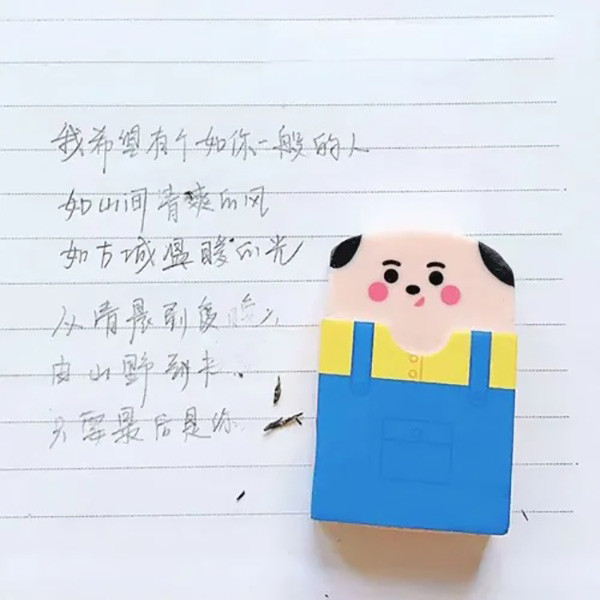 我希望有个如你一般的人
如山间清爽的风
如古城温暖的光
从清晨到夜晚
由山野到书
只要最后是你